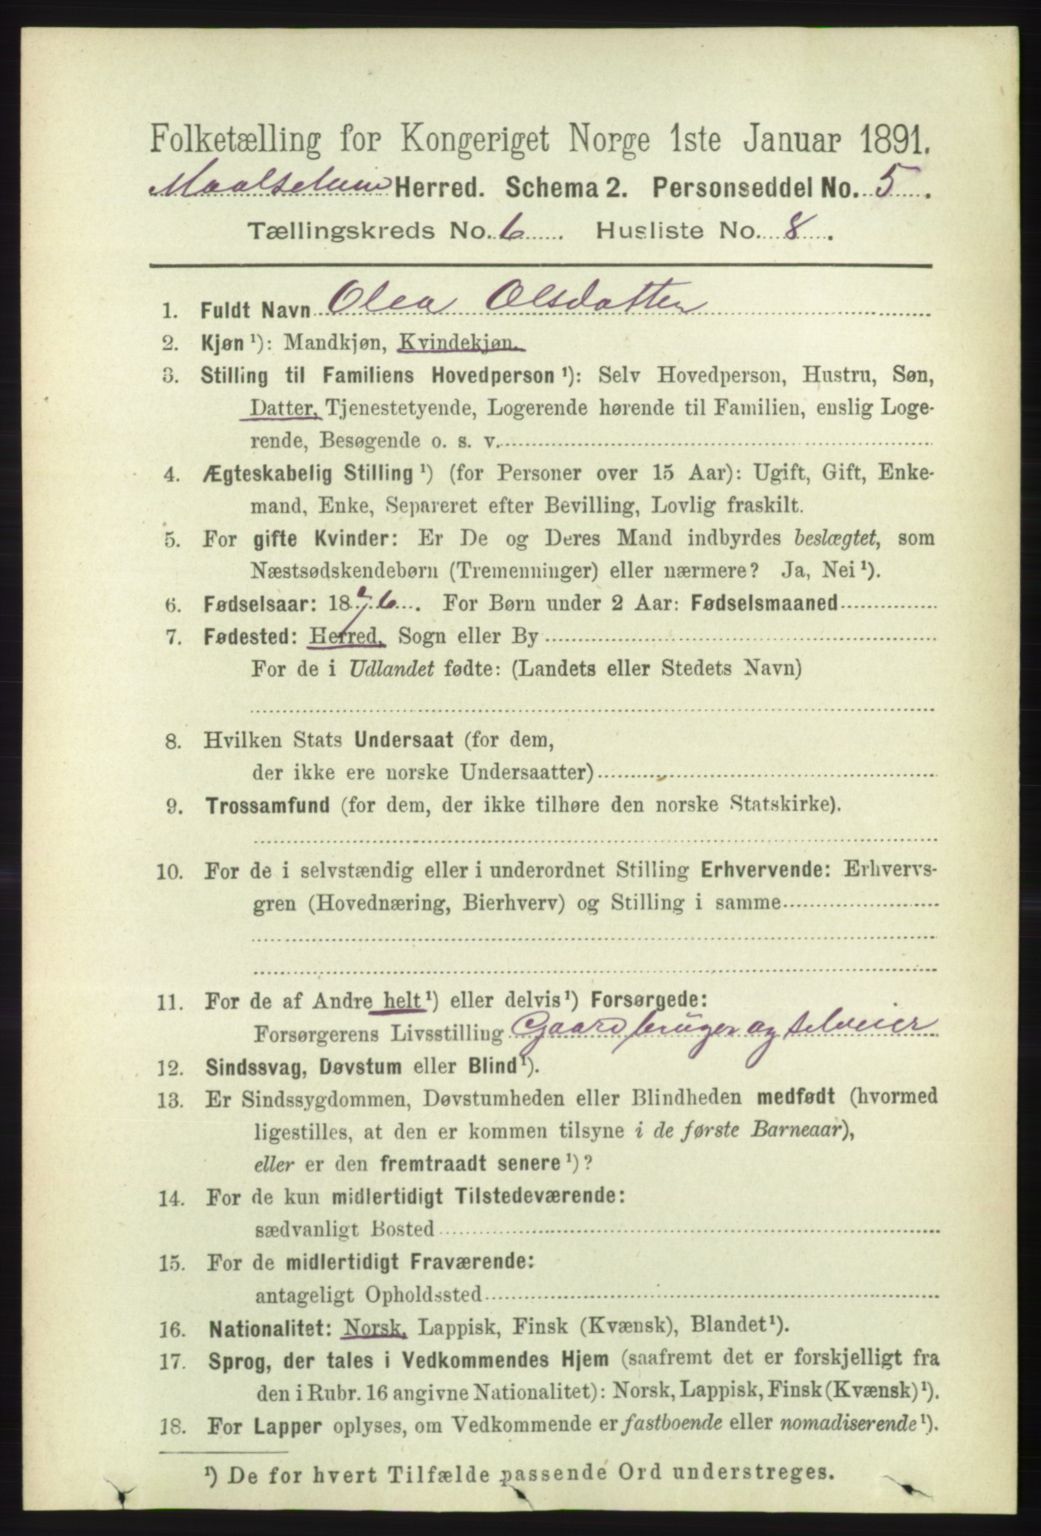 Folketælling for Kongeriget Norge 1ste Januar 1891.
Maalselven Herred. Schema 2. Personseddel No. 5.
Tællingskreds No. 6. Husliste No. 8.
1. Fuldt Navn Olea Olsdatter
2. Kjøn ¹): Mandkjøn, Kvindekjøn.
3. Stilling til Familiens Hovedperson ¹): Selv Hovedperson, Hustru, Søn,
Datter, Tjenestetyende, Logerende hørende til Familien, enslig Loge-
rende, Besøgende o. s. v.
4. Ægteskabelig Stilling ¹) (for Personer over 15 Aar): Ugift, Gift, Enke-
mand, Enke, Separeret efter Bevilling, Lovlig fraskilt.
5. For gifte Kvinder: Er De og Deres Mand indbyrdes beslægtet, som
Næstsødskendebørn (Tremenninger) eller nærmere? Ja, Nei ¹).
6. Fødselsaar: 1876. For Børn under 2 Aar: Fødselsmaaned
7. Fødested: Herred, Sogn eller By
For de i Udlandet fødte: (Landets eller Stedets Navn)
8. Hvilken Stats Undersaat (for dem,
der ikke ere norske Undersaatter)
9. Trossamfund (for dem, der ikke tilhøre den norske Statskirke).
10. For de i selvstændig eller i underordnet Stilling Erhvervende: Erhvervs-
gren (Hovednæring, Bierhverv) og Stilling i samme
11. For de af Andre helt ¹) eller delvis ¹) Forsørgede:
Forsørgerens Livsstilling Gaardbruger og selveier
12. Sindssvag, Døvstum eller Blind ¹).
13. Er Sindssygdommen, Døvstumheden eller Blindheden medfødt (hvormed
ligestilles, at den er kommen tilsyne i de første Barneaar),
eller er den fremtraadt senere ¹)?
14. For de kun midlertidigt Tilstedeværende:
sædvanligt Bosted
15. For de midlertidigt Fraværende:
antageligt Opholdssted
16. Nationalitet: Norsk, Lappisk, Finsk (Kvænsk), Blandet ¹).
17. Sprog, der tales i Vedkommendes Hjem (saafremt det er forskjelligt fra
den i Rubr. 16 angivne Nationalitet): Norsk, Lappisk, Finsk (Kvænsk) ¹).
18. For Lapper oplyses, om Vedkommende er fastboende eller nomadiserende ¹).
¹) De for hvert Tilfælde passende Ord understreges.